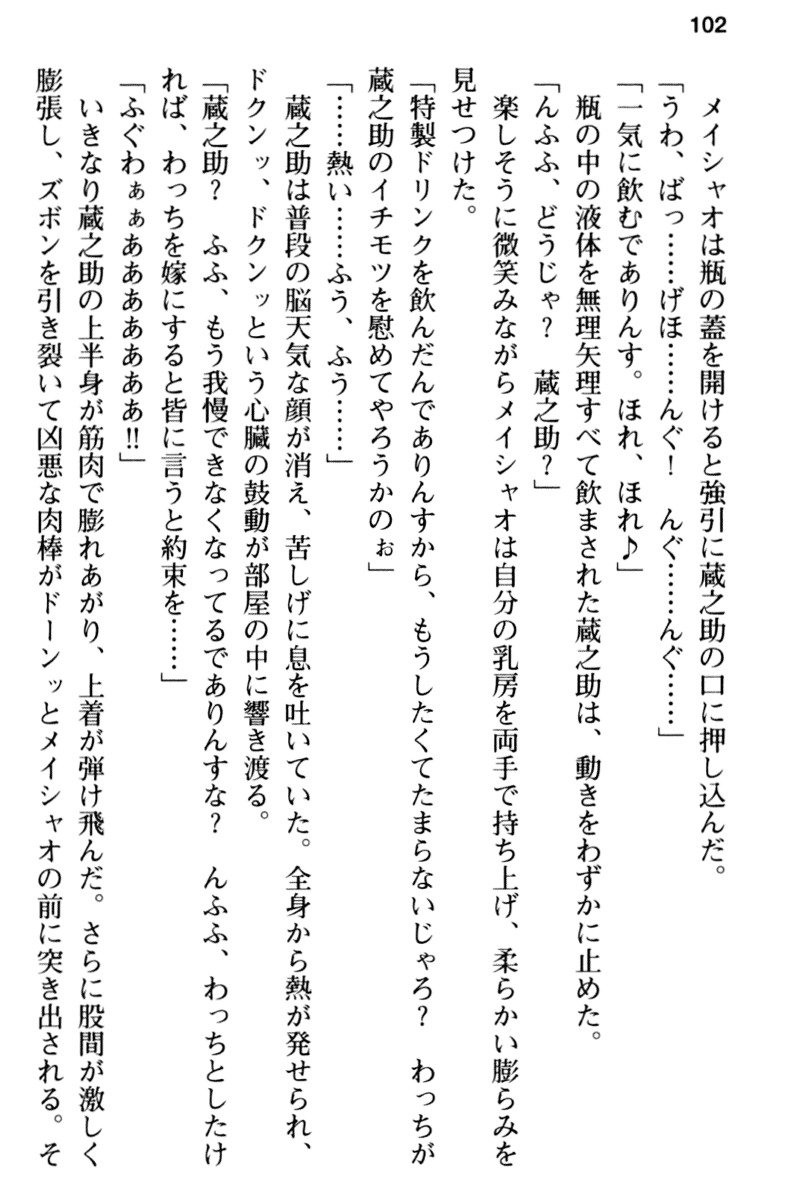 102
　メイシャオは瓶の蓋を開けると強引に蔵之助の口に押し込んだ。
「うわ、ばっ……げほ……んぐ！　んぐ……んぐ……」
「一気に飲むでありんす。ほれ、ほれ♪」
　瓶の中の液体を無理矢理すべて飲まされた蔵之助は、動きをわずかに止めた。
「んふふ、どうじゃ？　蔵之助？」
　楽しそうに微笑みながらメイシャオは自分の乳房を両手で持ち上げ、柔らかい膨らみを
見せつけた。
「特製ドリンクを飲んだんでありんすから、もうしたくてたまらないじゃろ？　わっちが
蔵之助のイチモツを慰めてやろうかのぉ」
「……熱い……ふう、ふう……」
　蔵之助は普段の脳天気な顔が消え、苦しげに息を吐いていた。全身から熱が発せられ、
ドクンッ、ドクンッという心臓の鼓動が部屋の中に響き渡る。
「蔵之助？　ふふ、もう我慢できなくなってるでありんすな？　んふふ、わっちとしたけ
れば、わっちを嫁にすると皆に言うと約束を……」
「ふぐわぁぁああああああ‼」
　いきなり蔵之助の上半身が筋肉で膨れあがり、上着が弾け飛んだ。さらに股間が激しく
膨張し、ズボンを引き裂いて凶悪な肉棒がドーンッとメイシャオの前に突き出される。そ